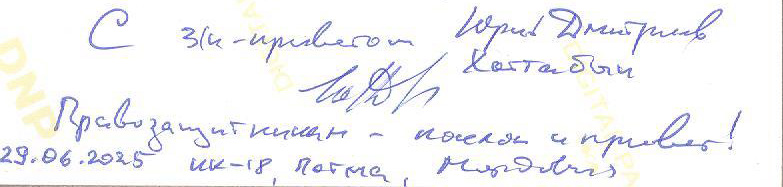 С з/к-приветом Юрий Дмитриев
Хоттабыч
Правозащитникам - поклон и привет!
29.06.2025 ИК-18, Потьма, Мордовия